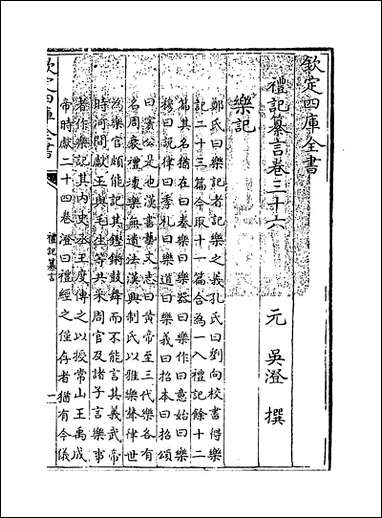 欽定四庫全書
禮記纂言卷三十六
元 吳澄 撰
樂記
鄭氏曰樂記者記樂之義孔氏曰劉向校書得樂
記二十三篇今取十一篇合為一入禮記餘十二
篇其名猶在曰奏樂曰樂器曰樂作曰意始曰樂
穆曰說律曰季札曰樂道曰樂義曰招本曰招頌
曰竇公是也漢書藝文志曰黄帝至三代樂各有
名周衰禮壊樂無遺法漢興制氏以雅樂聲律世
為樂官頗能記其鏗鏘鼓舞而不能言其義武帝
時河間獻王與毛生等共采周官及諸子言樂事
著作樂記其内史丞王度傳之以授常山王禹成
帝時獻二十四卷澄曰禮經之僅存者猶有今儀
欽定四庫全書
禮記纂言
一